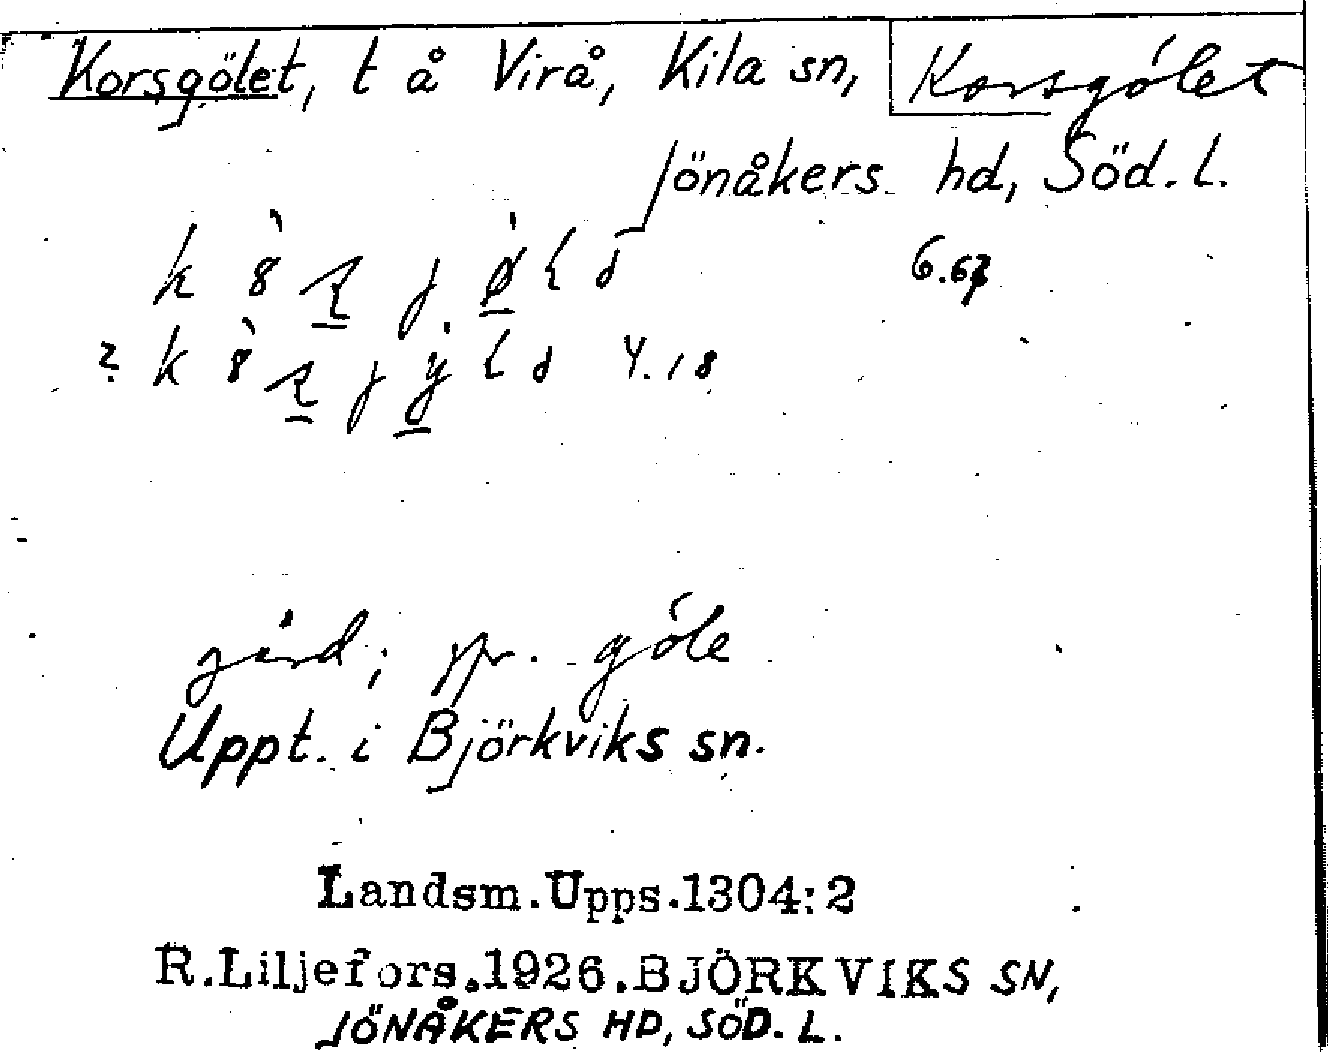 Korsgölet, t å Virå, Kila sn, Korsgölet
Jönåkers hd, Söd. L.
6.67
4.18
gård; jfr. göle
Uppt. i Björkviks sn.
Landsm.Upps.1304:2
R.Liljefors.1926.BJÖRKVIKS SN,
JÖNÅKERS HD, SÖD. L.